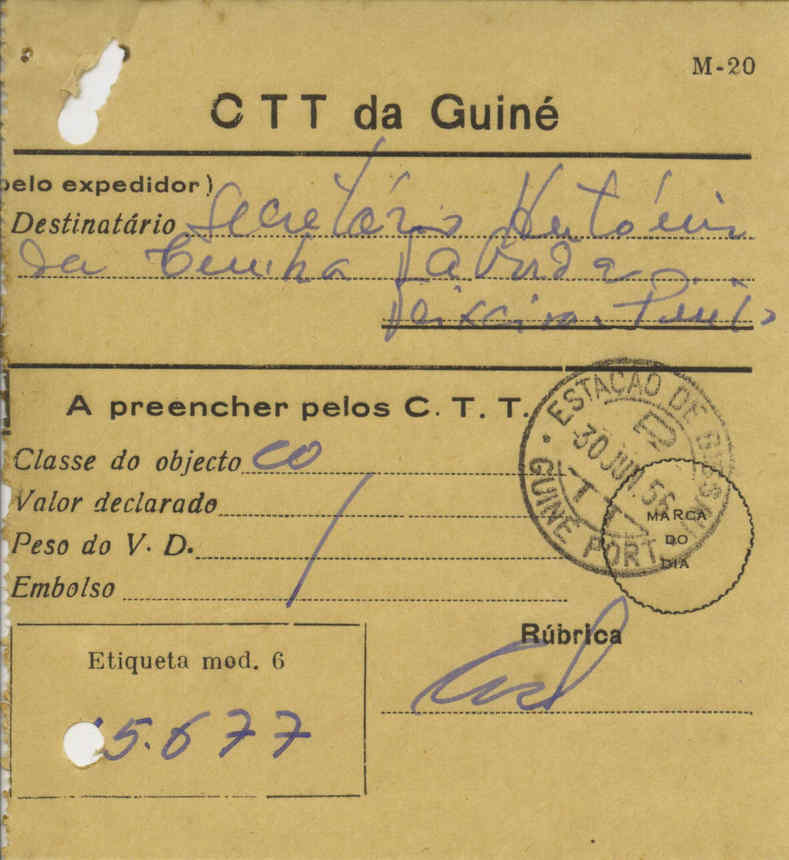 M-20
CTT da Guiné
pelo expedidor)
Destinatário Secretário António
da Cunha Taborda
Teixeira Pinto
A preencher pelos C. T. T.
Classe do objecto CO
Valor declarado
Peso do V. D.
Embolso
ESTAÇÃO DE BISSAU
30 JUN. 56
GUINÉ PORT.
MARCA
DO
DIA
Rúbrica
Etiqueta mod. 6
5.677